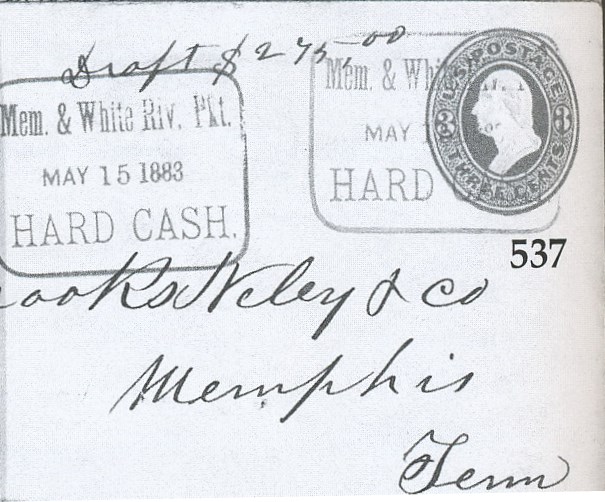 Draft $275.00
Mem. & White Riv. Pkt.
MAY 15 1883
HARD CASH.
Mem. & Whi
MAY 1
HARD
U.S. POSTAGE
3 3
THREE CENTS
537
ooks Neley & Co
Memphis
Tenn